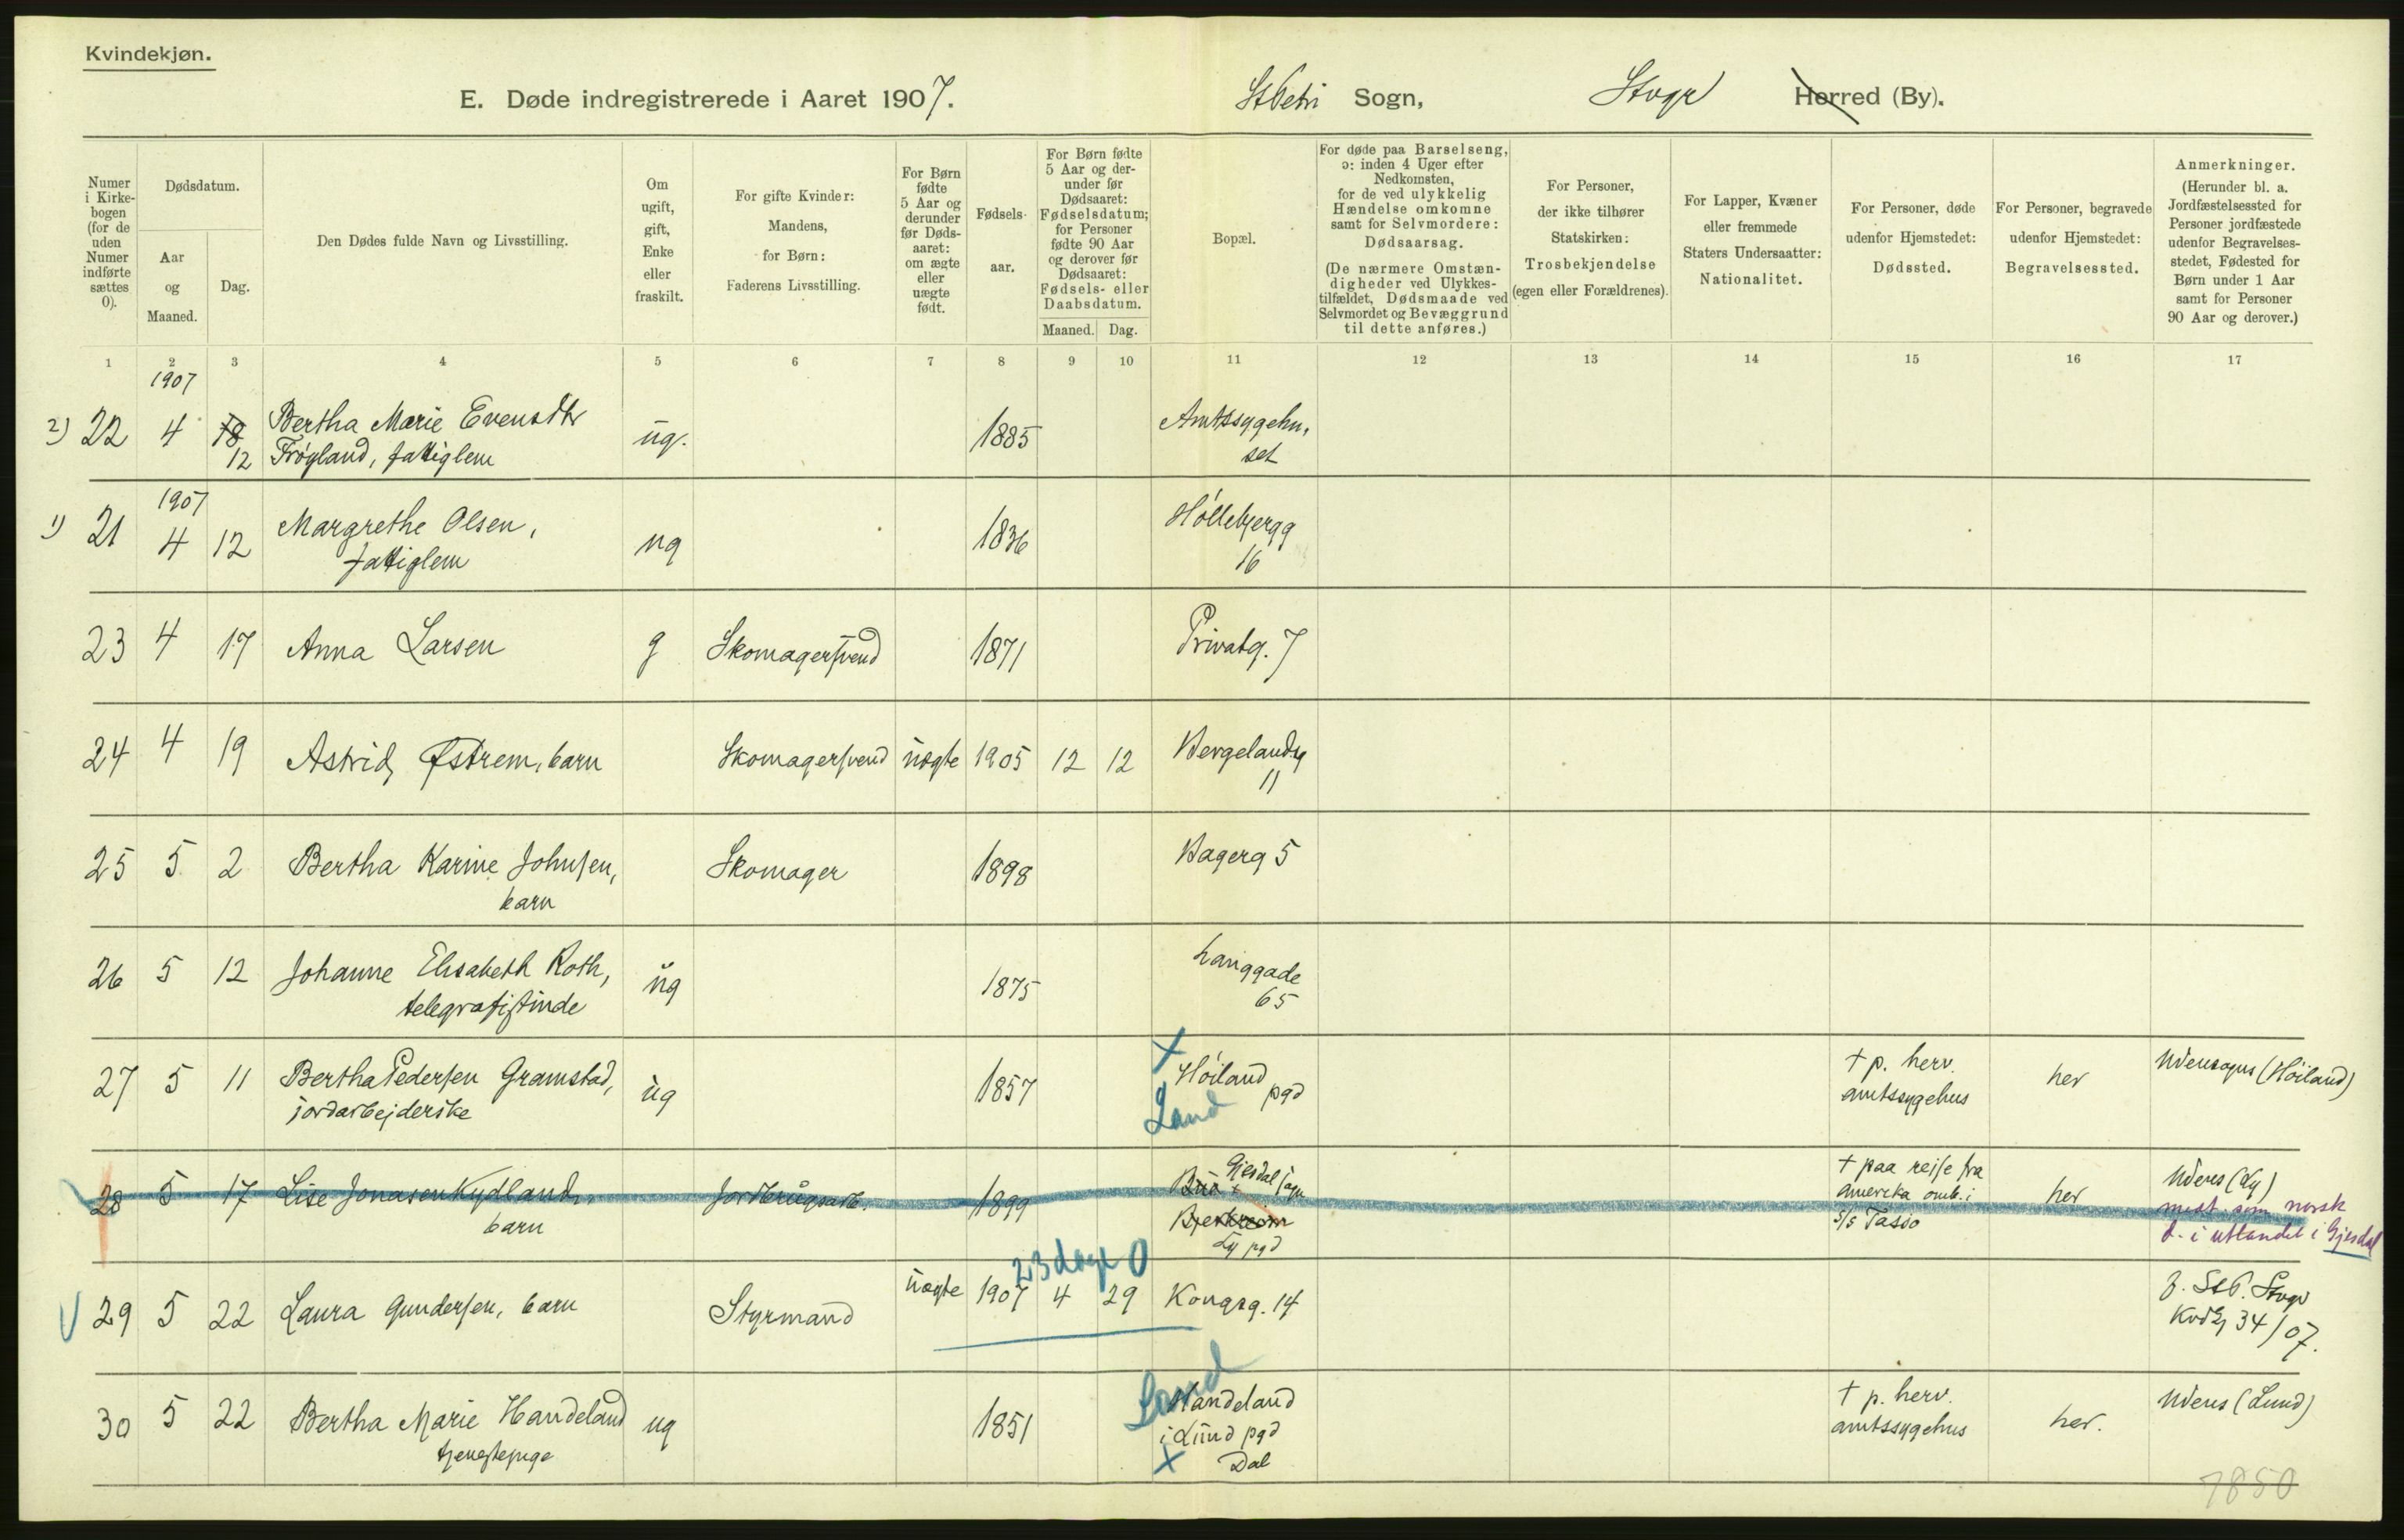 Kvindekjøn.
E. Døde indregistrerede i Aaret 1907.
St Petri Sogn, Stvgr Herred (By).
Numer i Kirkebogen (for de uden Numer indførte sættes 0).
Dødsdatum.
Aar og Maaned.
Dag.
Den Dødes fulde Navn og Livsstilling.
Om ugift, gift, Enke eller fraskilt.
For gifte Kvinder: Mandens, for Børn: Faderens Livsstilling.
For Børn fødte 5 Aar og derunder før Dødsaaret: om ægte eller uægte født.
Fødselsaar.
For Børn fødte 5 Aar og derunder før Dødsaaret: Fødselsdatum; for Personer fødte 90 Aar og derover før Dødsaaret: Fødsels- eller Daabsdatum.
Maaned. Dag.
Bopæl.
For døde paa Barselseng, ɔ: inden 4 Uger efter Nedkomsten, for de ved ulykkelig Hændelse omkomne samt for Selvmordere: Dødsaarsag.
(De nærmere Omstændigheder ved Ulykkestilfældet, Dødsmaade ved Selvmordet og Bevæggrund til dette anføres.)
For Personer, der ikke tilhører Statskirken: Trosbekjendelse (egen eller Forældrenes).
For Lapper, Kvæner eller fremmede Staters Undersaatter: Nationalitet.
For Personer, døde udenfor Hjemstedet: Dødssted.
For Personer, begravede udenfor Hjemstedet: Begravelsessted.
Anmerkninger.
(Herunder bl. a. Jordfæstelsessted for Personer jordfæstede udenfor Begravelsesstedet, Fødested for Børn under 1 Aar samt for Personer 90 Aar og derover.)
1 2 3 4 5 6 7 8 9 10 11 12 13 14 15 16 17
1907
2) 22 4 18 Bertha Marie Evensdtr ug. 1885 Amtssygehu,
12 Frøyland, fattiglem set
1907
1) 21 4 12 Margrethe Olsen, ug 1836 Hóllebjergg
fattiglem 16
23 4 17 Anna Larsen g Skomagersvend 1871 Privatg. 7
24 4 19 Astrid Østrem, barn Skomagersvend uægte 1905 12 12 Bergelandsg
11
25 5 2 Bertha Karine Johnsen, Skomager 1898 Bagerg 5
barn
26 5 12 Johanne Elisabeth Roth, ug 1875 Langgade
telegrafistinde 65
27 5 11 Bertha Pedersen Gramstad, ug 1857 Hóiland pgd † p. herv. her Udensogns (Hóiland)
jordarbejderske Land amtssygehus
28 5 17 Lise Jonasen Kydland, Jordbrugsarb. 1899 Gjesdal sogn † paa reise fra her Udens (Ly)
barn Bjerkreim amerika omb. i medt. som norsk
Ly pgd s/s Tasso d. i utlandet i Gjesdal
23 dage 0
29 5 22 Laura Gundersen, barn Styrmand uægte 1907 4 29 Kongsg. 14 f. St P. Stvgr
34/07.
Lund
30 5 22 Bertha Marie Handeland ug 1851 Handeland † p. herv. her. Udens (Lund)
tjenestepige i Lund pgd amtssygehus
Dal
7850